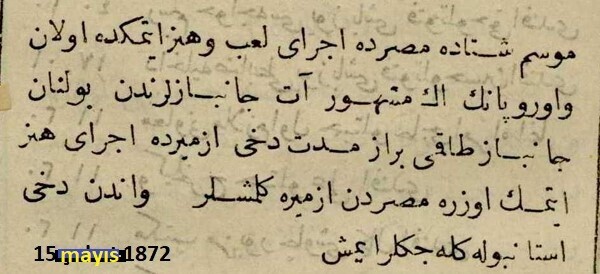 موسم شتاده مصرده اجرای لعب وهنر ایتمکده اولان
واوروپانك اك مشهور آت جانبازلرندن بولنان
جانباز طاقمی براز مدت دخی ازمیرده اجرای هنر
ایتمك اوزره مصردن ازمیره کلمشلر واندن دخی
استانبوله کله جکلر ایمش
15 mayıs 1872